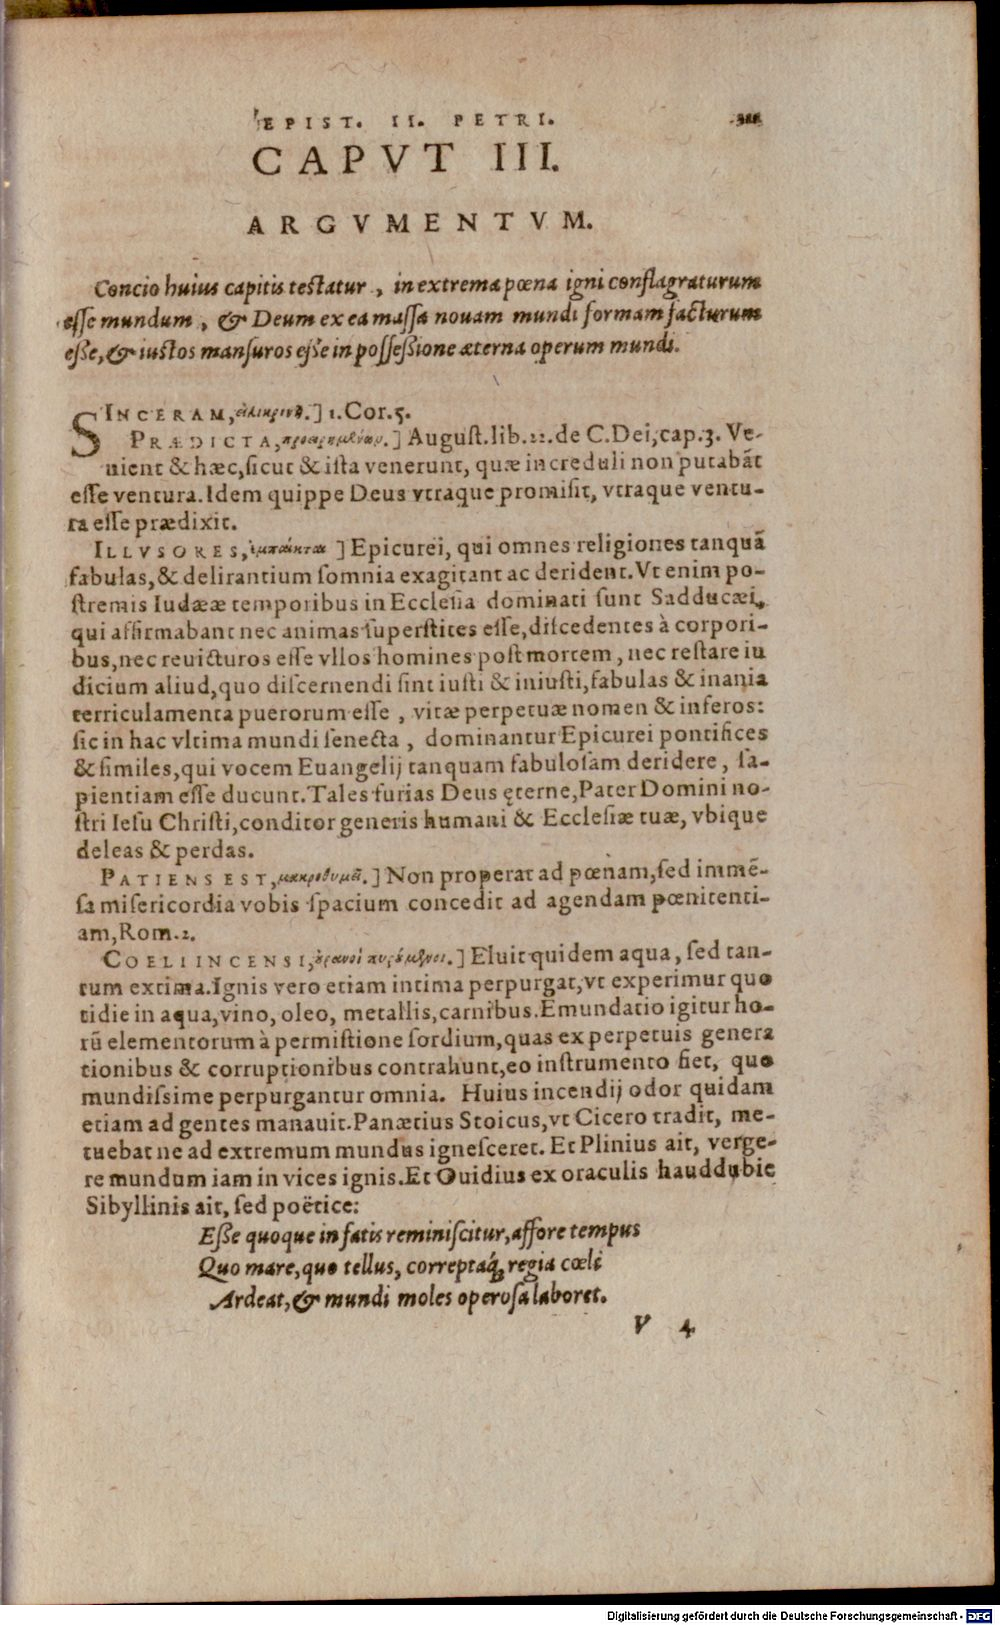 EPIST. II. PETRI.
CAPVT III.
ARGVMENTVM.
Concio huius capitis testatur, in extrema pœna igni conflagraturum
esse mundum, & Deum ex ea massa nouam mundi formam facturum
esse, & iustos mansuros esse in possessione æterna operum mundi.
SINCERAM, εἰλικρινῆ.] 1. Cor. 5.
PRÆDICTA, προειρημένων.] August. lib. 22. de C. Dei, cap. 3. Ve-
nient & hæc, sicut & ista venerunt, quæ increduli non putabāt
esse ventura. Idem quippe Deus vtraque promisit, vtraque ventu-
ra esse prædixit.
ILLVSORES, ἐμπαῖκται] Epicurei, qui omnes religiones tanquā
fabulas, & delirantium somnia exagitant ac derident. Vt enim po-
stremis Iudææ temporibus in Ecclesia dominati sunt Sadducæi,
qui affirmabant nec animas superstites esse, discedentes à corpori-
bus, nec reuicturos esse vllos homines post mortem, nec restare iu
dicium aliud, quo discernendi sint iusti & iniusti, fabulas & inania
terriculamenta puerorum esse, vitæ perpetuæ nomen & inferos:
sic in hac vltima mundi senecta, dominantur Epicurei pontifices
& similes, qui vocem Euangelij tanquam fabulosam deridere, sa-
pientiam esse ducunt. Tales furias Deus ęterne, Pater Domini no-
stri Iesu Christi, conditor generis humani & Ecclesiæ tuæ, vbique
deleas & perdas.
PATIENS EST, μακροθυμεῖ.] Non properat ad pœnam, sed immē-
sa misericordia vobis spacium concedit ad agendam pœnitenti-
am, Rom. 2.
COELI INCENSI, οὐρανοὶ πυρούμενοι.] Eluit quidem aqua, sed tan-
tum extima. Ignis vero etiam intima perpurgat, vt experimur quo
tidie in aqua, vino, oleo, metallis, carnibus. Emundatio igitur ho-
rū elementorum à permistione sordium, quas ex perpetuis genera
tionibus & corruptionibus contrahunt, eo instrumento fiet, quo
mundissime perpurgantur omnia. Huius incendij odor quidam
etiam ad gentes manauit. Panætius Stoicus, vt Cicero tradit, me-
tuebat ne ad extremum mundus ignesceret. Et Plinius ait, verge-
re mundum iam in vices ignis. Et Ouidius ex oraculis hauddubie
Sibyllinis ait, sed poëtice:
Esse quoque in fatis reminiscitur, affore tempus
Quo mare, quo tellus, correptaq́; regia cœli
Ardeat, & mundi moles operosa laboret.
V 4
Digitalisierung gefördert durch die Deutsche Forschungsgemeinschaft - DFG